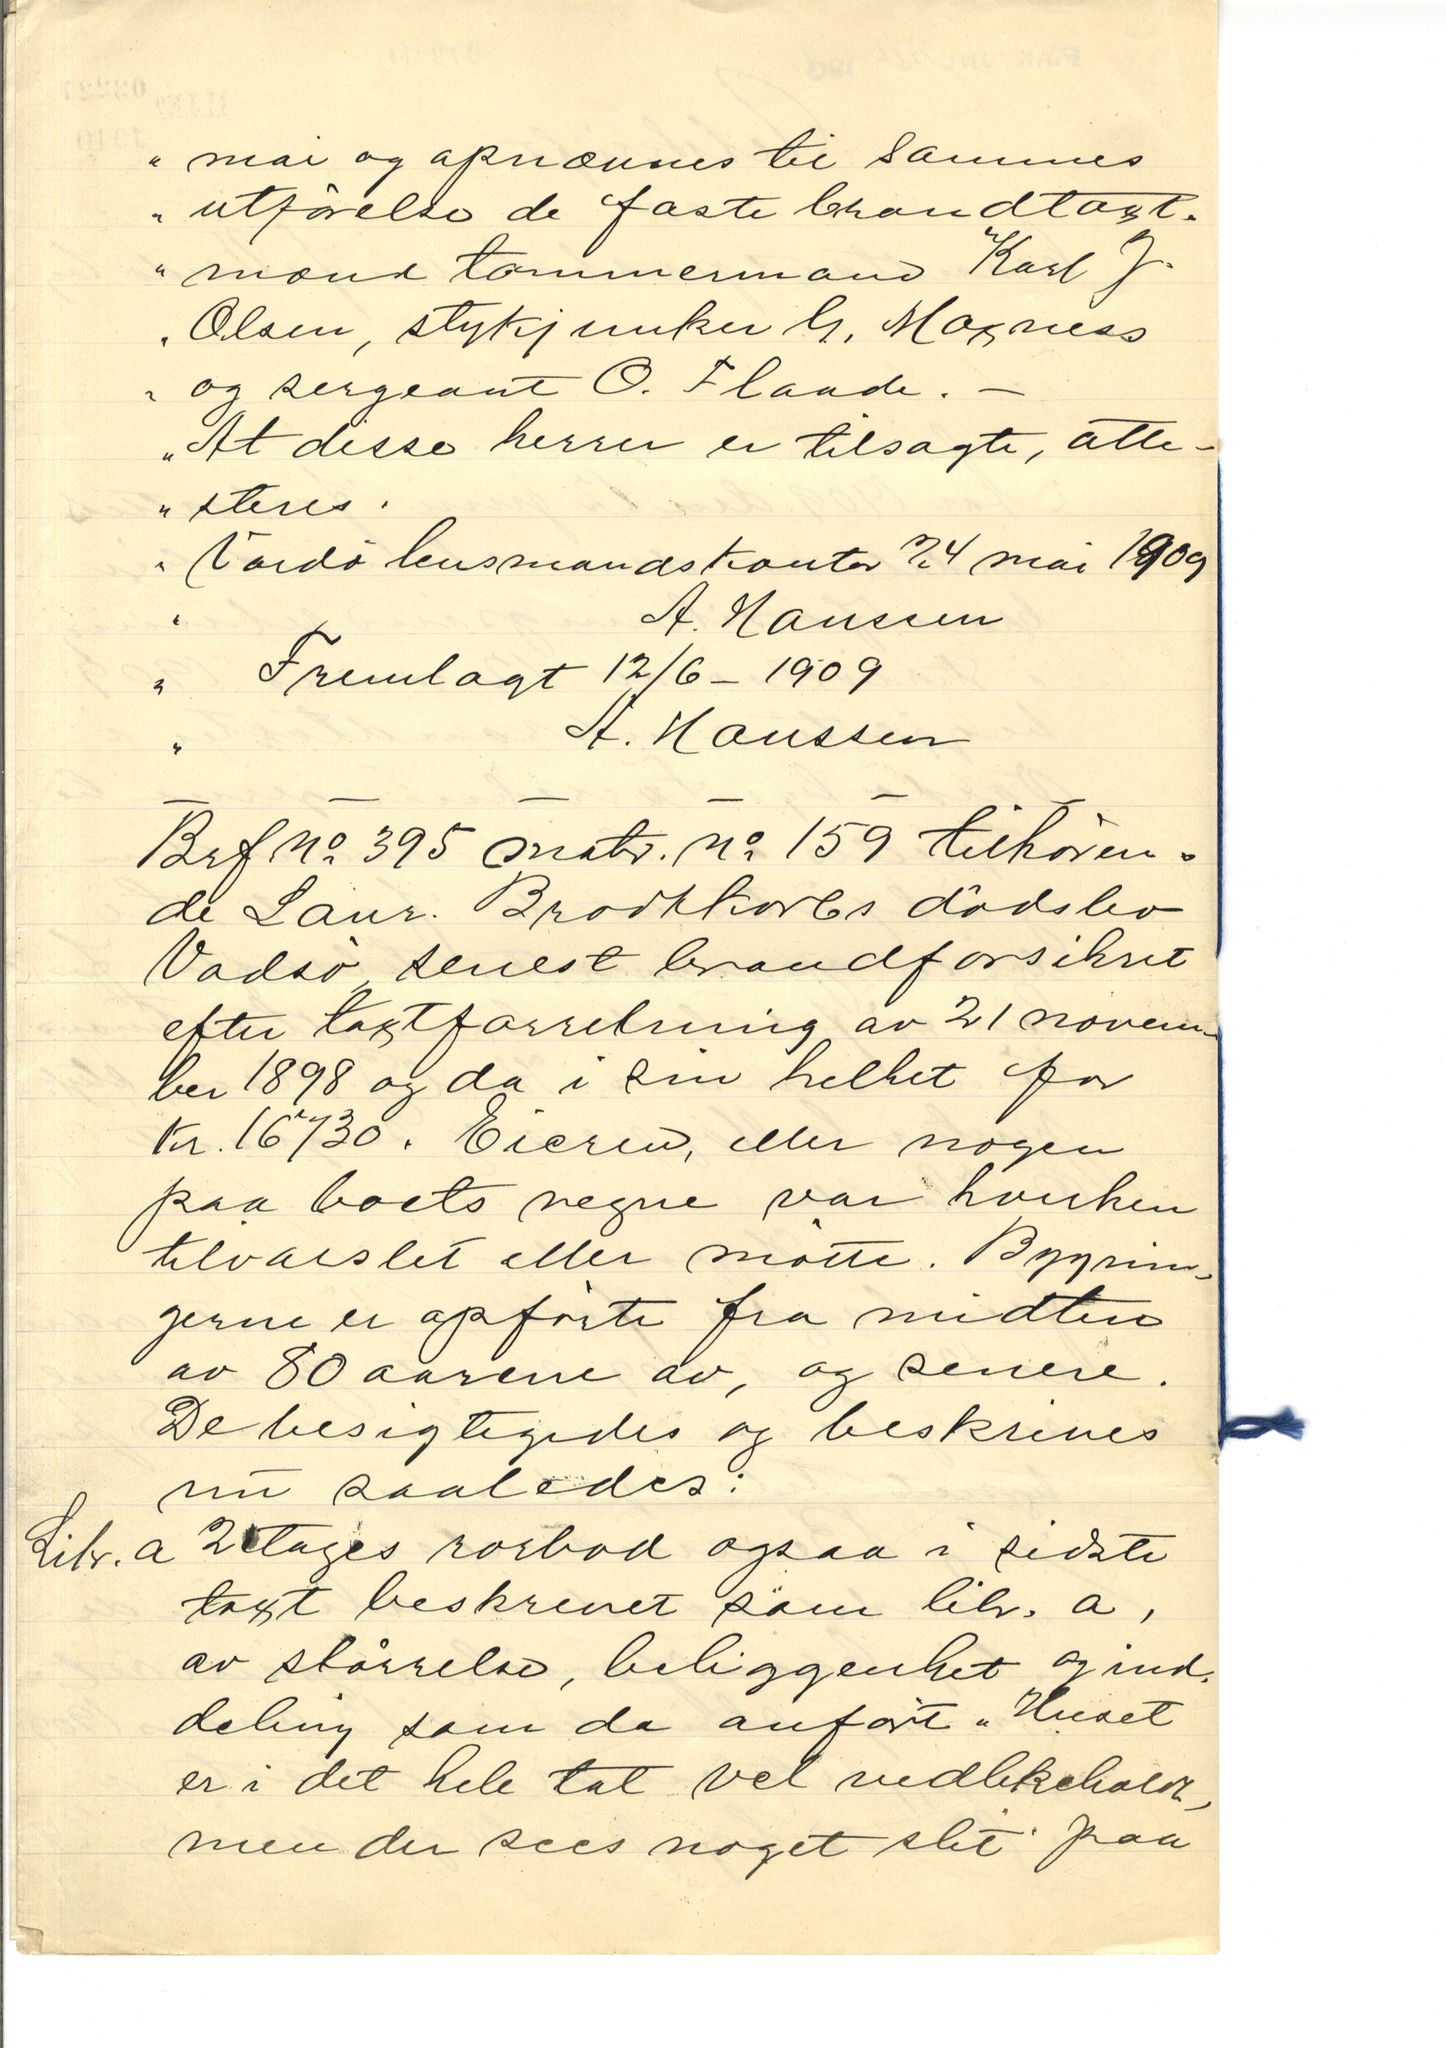 „ mai og opnævnes til sammes
„ utførelse de faste brandtaxt-
„ mænd tømmermand Karl J.
„ Olsen, stykjunker G. Maxness
„ og sergeant O. Flaade. —
„ At disse herrer er tilsagte, atte-
„ steres.
„ Vardø lensmandskontor 24 mai 1909
„ A. Hanssen
„ Fremlagt 12/6 – 1909
„ A. Hanssen
— — — — — —
Brf No 395 matr. No 159 tilhøren-
de Laur. Brodtkorbs dødsbo
Vadsø, senest brandforsikret
efter taxtforretning av 21 novem-
ber 1898 og da i sin helhet for
Kr. 16730. Eieren, eller nogen
paa boets vegne var hverken
tilvarslet eller møtte. Bygnin-
gerne er opførte fra midten
av 80 aarene av, og senere.
De besigtigedes og beskrives
nu saaledes:
Litr. a 2 etages rorbod ogsaa i sidste
taxt beskrevet som litr. a,
av størrelse, beliggenhet og ind-
deling som da anført. Huset
er i det hele tat vel vedlikeholdt,
men der sees noget slit paa